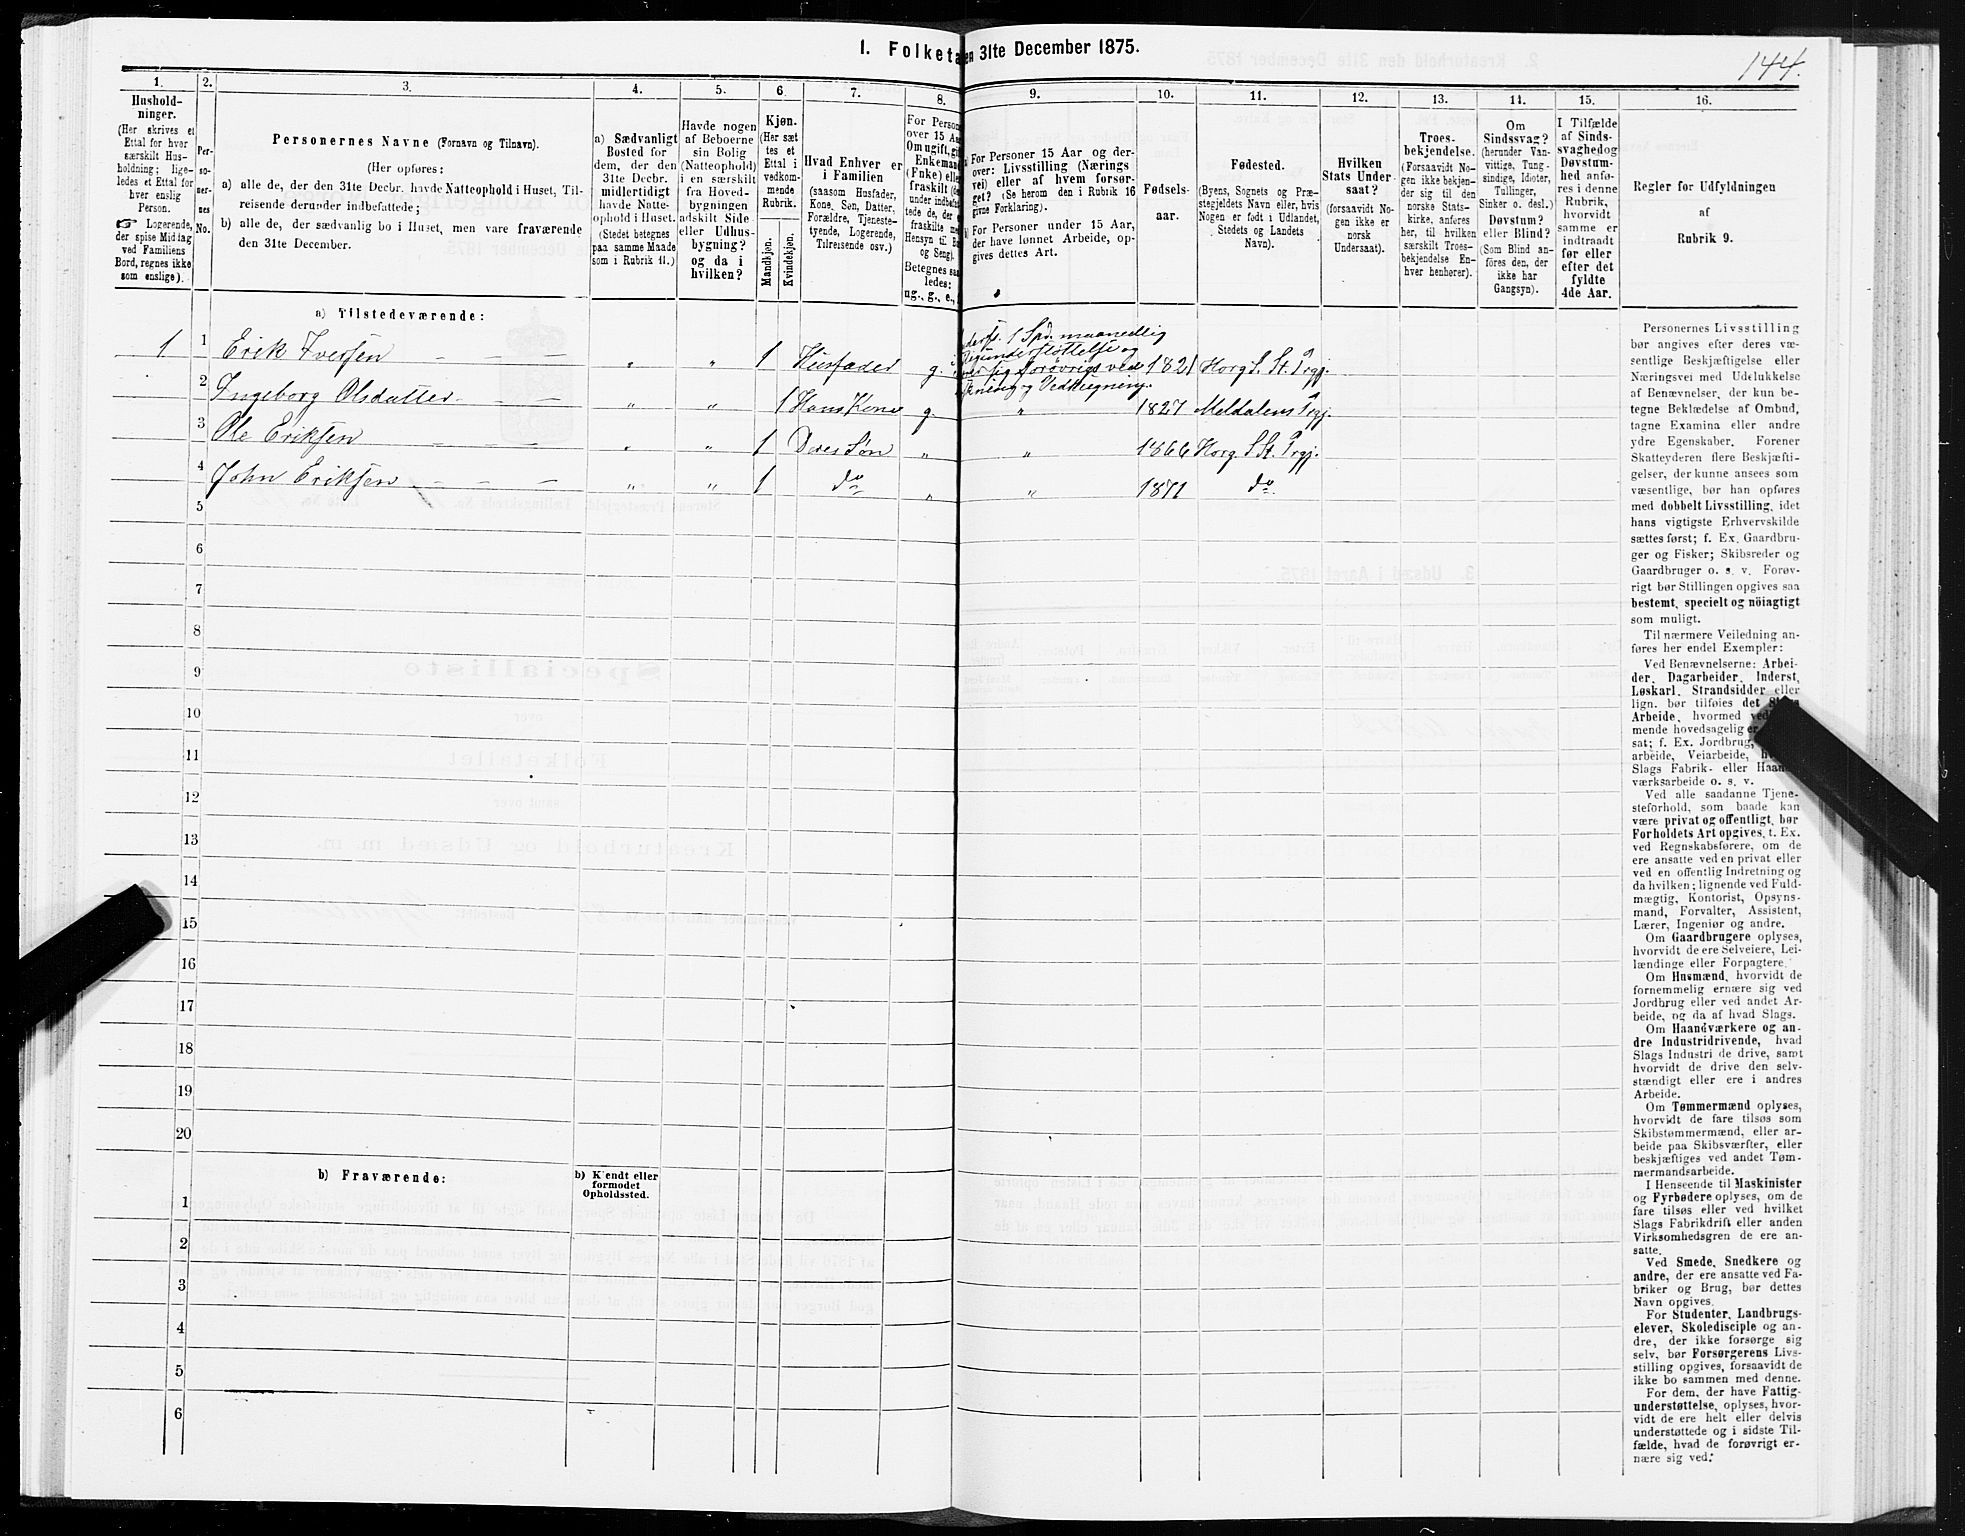 I. Folketa en 31te December 1875.
144.
1.
Hushold-
ninger.
(Her skrives et
Ettal for hver
særskilt Hus-
holdning; lige-
ledes et Ettal for
hver enslig
Person.
☞ Logerende,
der spise Middag
ved Familiens
Bord, regnes ikke
som enslige).
2.
Per-
so-
ner-
nes
No.
3.
Personernes Navne (Fornavn og Tilnavn).
(Her opføres:
a) alle de, der den 31te Decbr. havde Natteophold i Huset, Til-
reisende derunder indbefattede;
b) alle de, der sædvanlig bo i Huset, men vare fraværende
den 31te December.
4.
a) Sædvanligt
Bosted for
dem, der den
31te Decbr.
midlertidigt
havde Natte-
ophold i Huset.
(Stedet betegnes
paa samme Maade
som i Rubrik 11.)
5.
Havde nogen
af Beboerne
sin Bolig
(Natteophold)
i en særskilt
fra Hoved-
bygningen
adskilt Side-
eller Udhus-
bygning?
og da i
hvilken?
6.
Kjøn.
(Her sæt-
tes et
Ettal i
vedkom-
mende
Rubrik.
Mandkjøn.
Kvindekjøn.
7.
Hvad Enhver er
i Familien
(saasom Husfader,
Kone, Søn, Datter,
Forældre, Tjeneste-
tyende, Logerende,
Tilreisende osv.)
8.
For Person
over 15 Aa
Om ugift, gif
Enkeman
(Enke) elle
fraskilt (de
under indbefat-
tede de, der e
fraskilte me
Hensyn til Bo
og Seng).
Betegnes saa
ledes:
ug., g., e.,
9.
For Personer 15 Aar og der-
over: Livsstilling (Nærings
vei) eller af hvem forsør-
get? (Se herom den i Rubrik 16
givne Forklaring).
For Personer under 15 Aar,
der have lønnet Arbeide, op-
gives dettes Art.
10.
Fødsels-
aar.
11.
Fødested.
(Byens, Sognets og Præ-
stegjeldets Navn eller, hvis
Nogen er født i Udlandet,
Stedets og Landets
Navn).
12.
Hvilken
Stats Under-
saat?
(forsaavidt No-
gen ikke er
norsk
Undersaat).
13.
Troes-
bekjendelse.
(Forsaavidt No-
gen ikke bekjen-
der sig til den
norske Stats-
kirke, anføres
her, til hvilken
særskilt Troes-
bekjendelse En-
hver henhører).
14.
Om
Sindssvag?
(herunder Van-
vittige, Tung-
sindige, Idioter,
Tullinger,
Sinker o. desl.)
Døvstum?
eller Blind?
(Som Blind an-
føres den, der
ikke har
Gangsyn).
15.
I Tilfælde
af Sinds-
svaghed og
Døvstum-
hed anfø-
res i denne
Rubrik,
hvorvidt
samme er
indtraadt
før eller
efter det
fyldte
4de Aar.
16.
Regler for Udfyldningen
af
Rubrik 9.
a) Tilstedeværende:
1 1 Erik Iversen " " 1 Husfader g. 1 Spd. maanedlig 1821 Horg S. St. Prgj.
2 Ingeborg Olsdatter " " 1 Hans Kone g. " 1827 Meldalens Prgj.
3 Ole Eriksen " " 1 Deres Søn " " 1866 Horg S St. Prgj.
4 John Eriksen " " 1 do " " 1871 do
5
6
7
8
9
10
11
12
13
14
15
16
17
18
19
20
b) Fraværende:
b) Kjendt eller
formodet
Opholdssted.
1
2
3
4
5
6
Personernes Livsstilling
bør angives efter deres væ-
sentlige Beskjæftigelse eller
Næringsvei med Udelukkelse
af Benævnelser, der kun be-
tegne Beklædelse af Ombud,
tagne Examina eller andre
ydre Egenskaber. Forener
Skatteyderen flere Beskjæfti-
gelser, der kunne ansees som
væsentlige, bør han opføres
med dobbelt Livsstilling, idet
hans vigtigste Erhvervskilde
sættes først; f. Ex. Gaardbru-
ger og Fisker; Skibsreder og
Gaardbruger o. s. v. Forøv-
rigt bør Stillingen opgives saa
bestemt, specielt og nöiagtigt
som muligt.
Til nærmere Veiledning an-
føres her endel Exempler:
Ved Benævnelserne: Arbei-
der, Dagarbeider, Inderst,
Løskarl, Strandsidder eller
lign. bør tilføies det
Arbeide, hvormed
mende hovedsagelig er
sat; f. Ex. Jordbrug,
arbeide, Veiarbeide,
Slags Fabrik- eller Haand-
værksarbeide o. s. v.
Ved alle saadanne Tjene-
steforhold, som baade kan
være privat og offentligt, bør
Forholdets Art opgives, t. Ex.
ved Regnskabsførere, om de
ere ansatte ved en privat eller
ved en offentlig Indretning og
da hvilken; lignende ved Fuld-
mægtig, Kontorist, Opsyns-
mand, Forvalter, Assistent,
Lærer, Ingeniør og andre.
Om Gaardbrugere oplyses,
hvorvidt de ere Selveiere, Lei-
lændinge eller Forpagtere.
Om Husmænd, hvorvidt de
fornemmelig ernære sig ved
Jordbrug eller ved andet Ar-
beide, og da af hvad Slags.
Om Haandværkere og an-
dre Industridrivende, hvad
Slags Industri de drive, samt
hvorvidt de drive den selv-
stændigt eller ere i andres
Arbeide.
Om Tømmermænd oplyses,
hvorvidt de fare tilsøs som
Skibstømmermænd, eller ar-
beide paa Skibsværfter, eller
beskjæftiges ved andet Tøm-
mermandsarbeide.
I Henseende til Maskinister
og Fyrbødere oplyses, om de
fare tilsøs eller ved hvilket
Slags Fabrikdrift eller anden
Virksomhedsgren de ere an-
satte.
Ved Smede, Snedkere og
andre, der ere ansatte ved Fa-
briker og Brug, bør dettes
Navn opgives.
For Studenter, Landbrugs-
elever, Skoledisciple og an-
dre, der ikke forsørge sig
selv, bør Forsørgerens Livs-
stilling opgives, forsaavidt de
ikke bo sammen med denne.
For dem, der have Fattig-
understøttelse, oplyses, hvor-
vidt de ere helt eller delvis
understøttede og i sidste Til-
fælde, hvad de forøvrigt er-
nære sig ved.